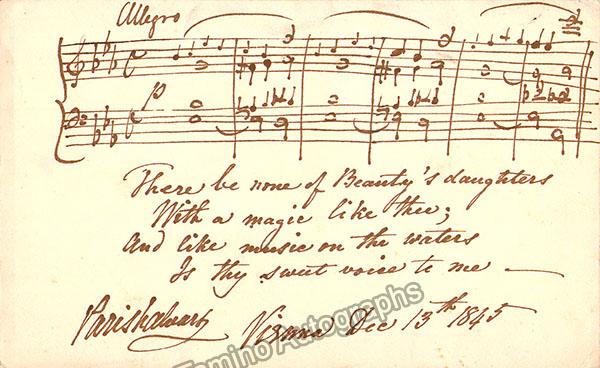 Allegro
p
There be none of Beauty's daughters
With a magic like thee;
And like music on the waters
Is thy sweet voice to me —
Parish Alvars Vienna Dec 13th 1845
Tamino Autographs